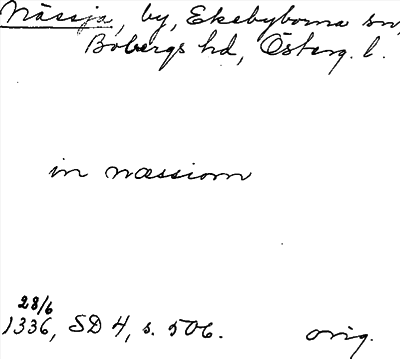 Nässja, by, Ekebyborna sn,
Bobergs hd, Österg. l.
in næssiom
28/6
1336, SD 4, s. 506.
orig.